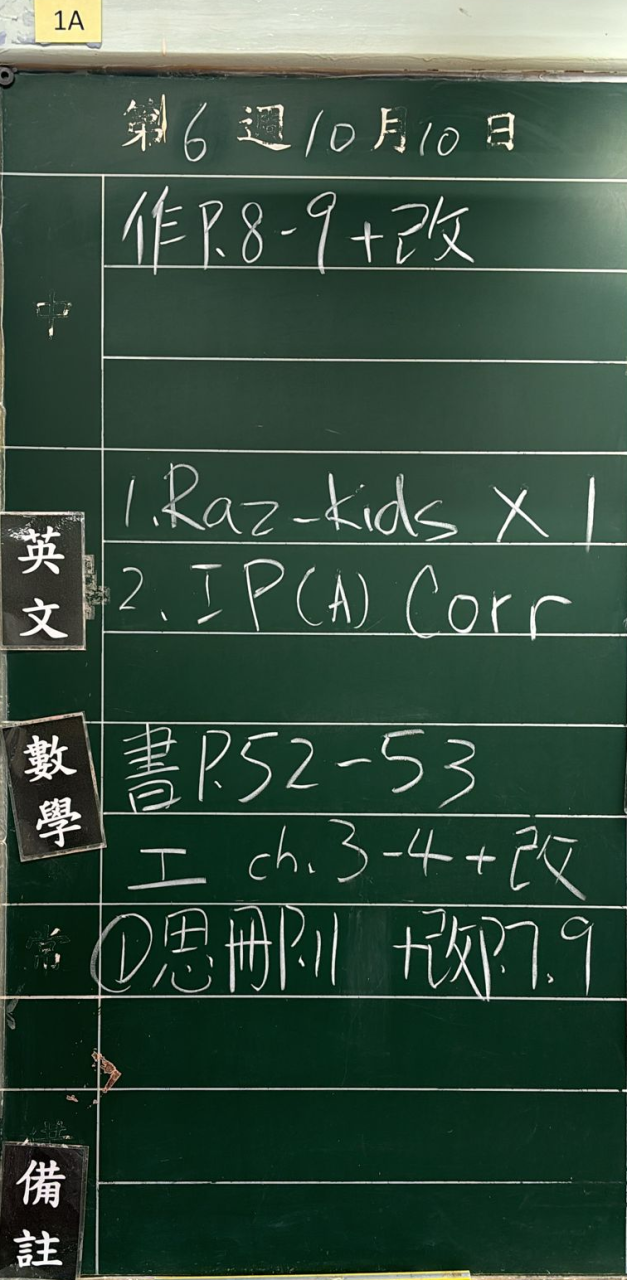 1A
第6週10月10日
中
作P.8-9+改
英文
1.Raz-kids X 1
2.IP(A) Corr
數學
書P.52-53
工 ch.3-4+改
常
①思冊P.11 +改P.7.9
備註